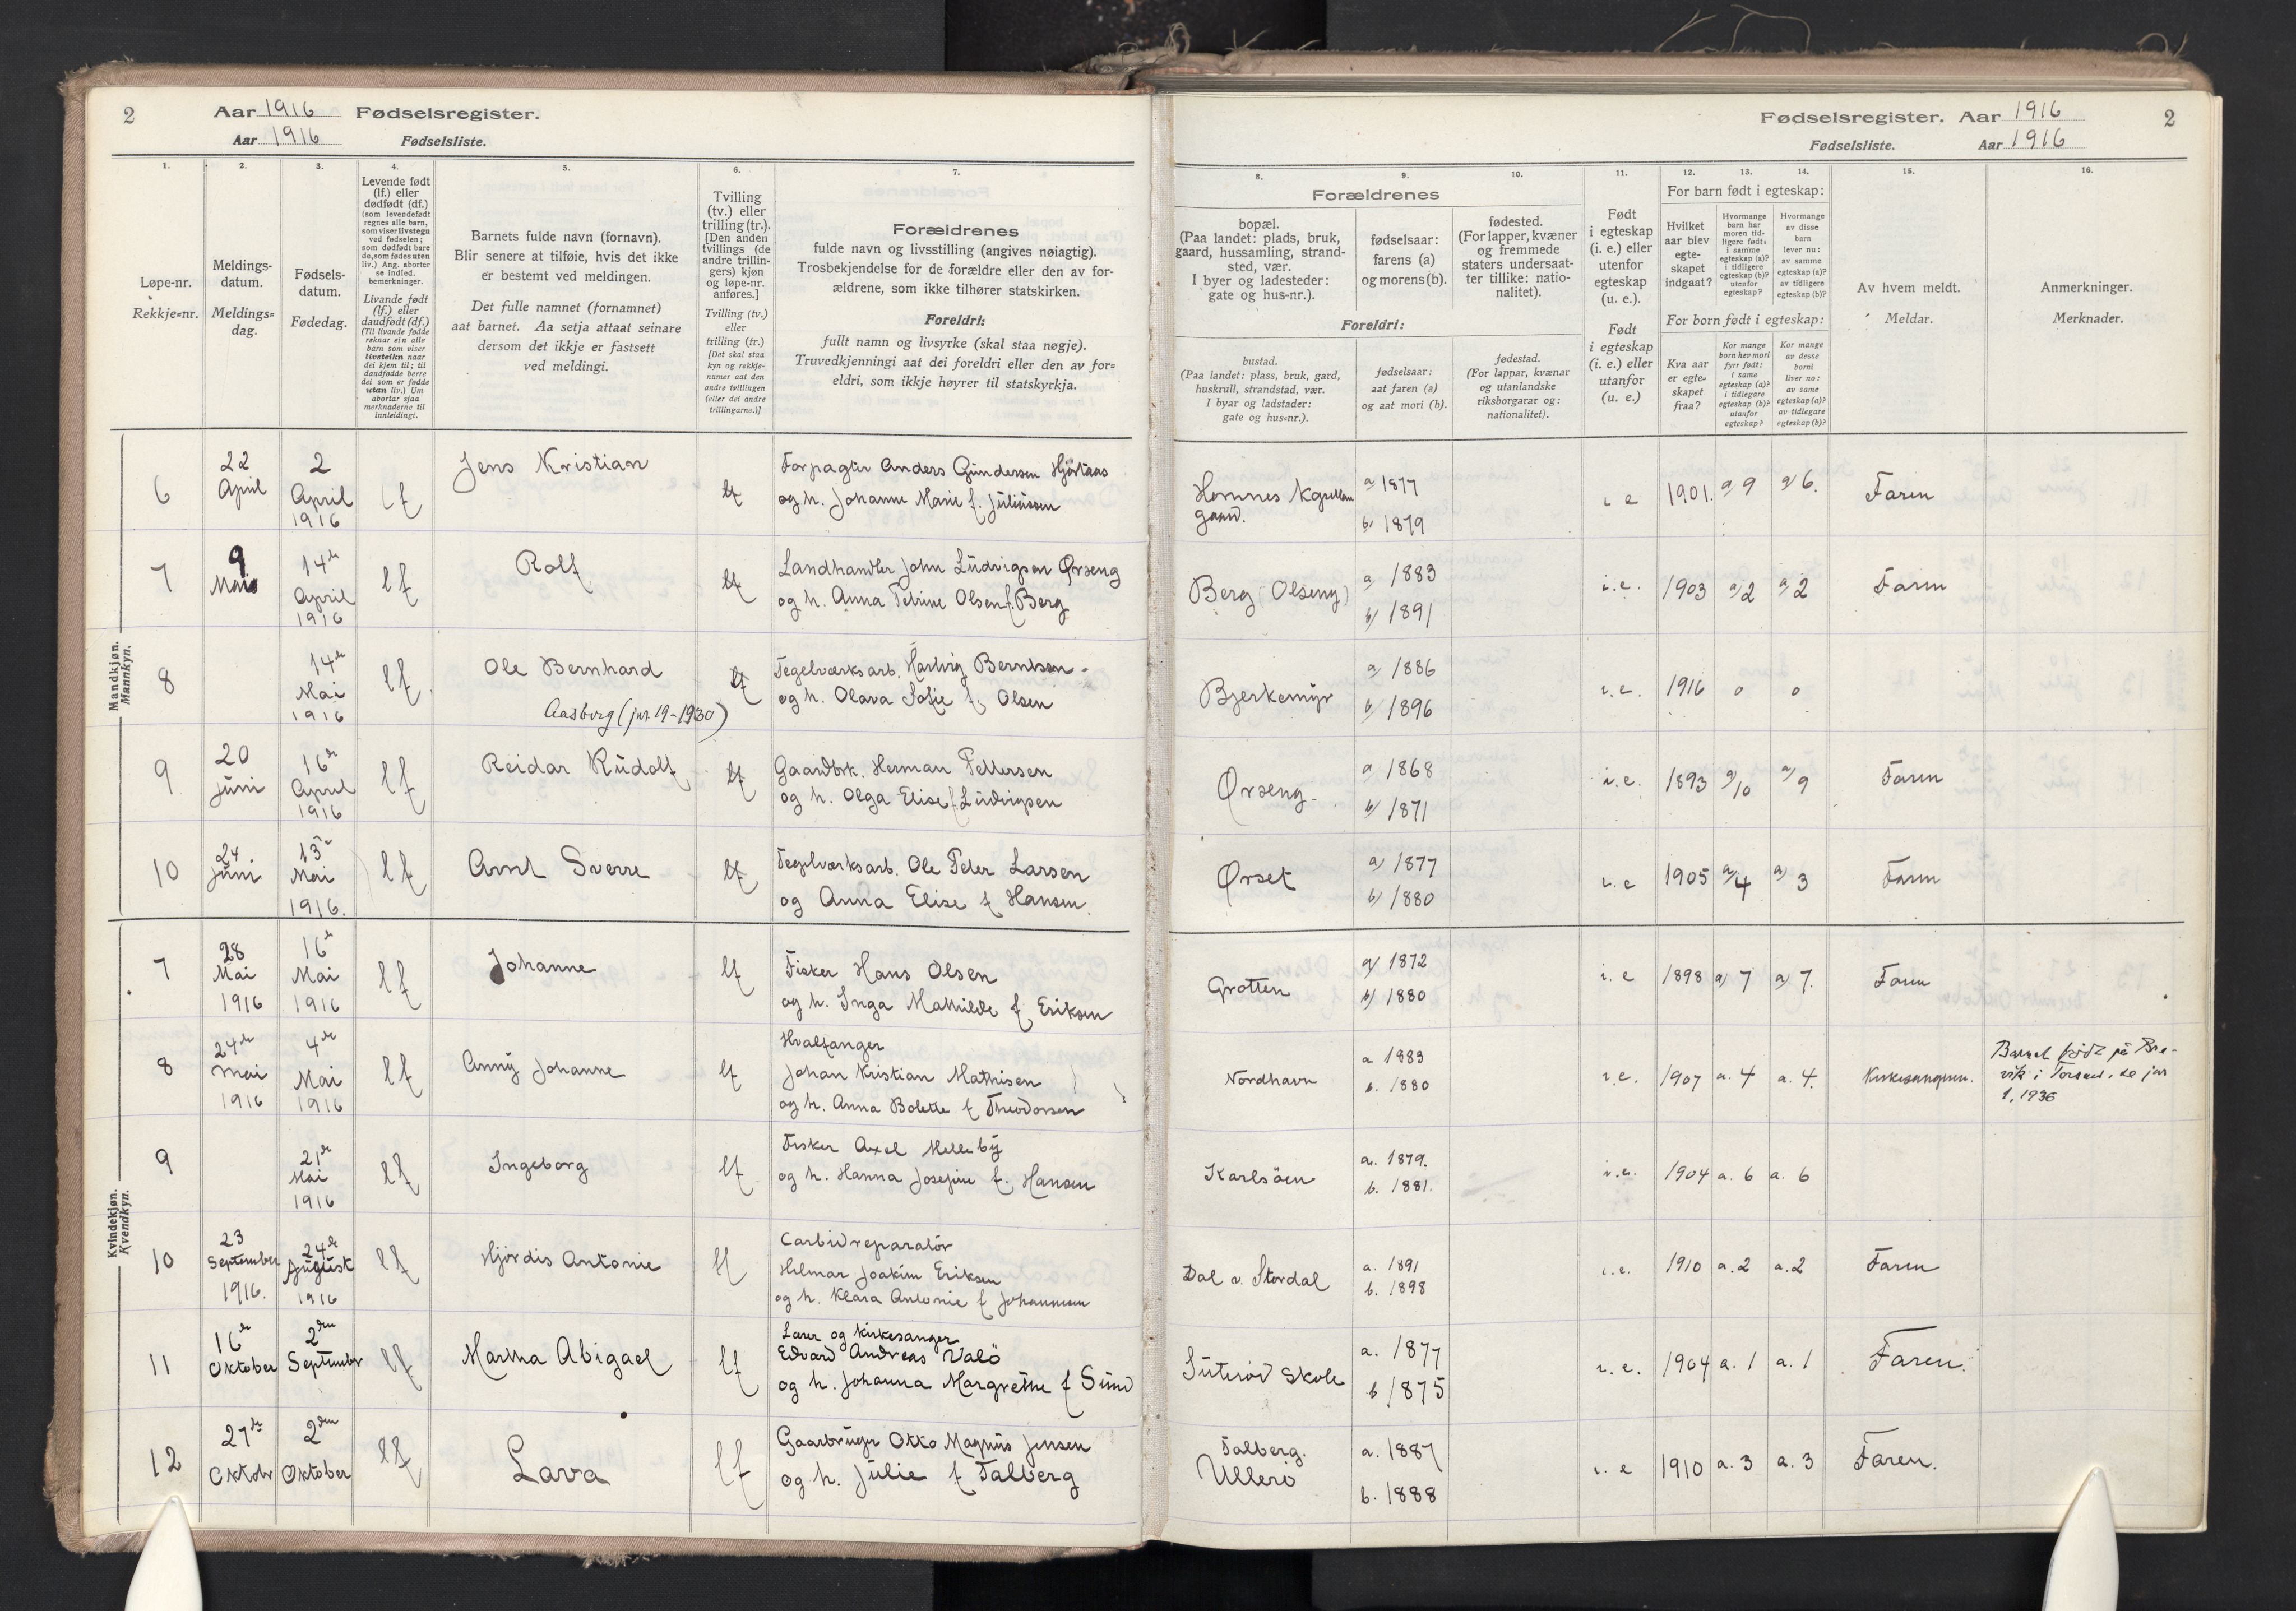 2 Aar 1916 Fødselsregister.
Aar 1916 Fødselsliste.
1. 2. 3. 4. 5. 6. 7.
Løpe-nr.
Rekkje=nr.
Meldings-
datum.
Meldings=
dag.
Fødsels-
datum.
Fødedag.
Levende født
(lf.) eller
dødfødt (df.)
(som levendefødt
regnes alle barn,
som viser livstegn
ved fødselen;
som dødfødt bare
de, som fødes uten
liv.) Ang. aborter
se indled.
bemerkninger.
Livande født
(lf.) eller
daudfødt (df.)
(Til livande fødde
reknar ein alle
barn som viser
livsteikn naar
dei kjem til; til
daudfødde berre
dei som er fødde
utan liv.) Um
abortar sjaa
merknaderne til
innleidingi.
Barnets fulde navn (fornavn).
Blir senere at tilføie, hvis det ikke
er bestemt ved meldingen.
Det fulle namnet (fornamnet)
aat barnet. Aa setja attaat seinare
dersom det ikkje er fastsett
ved meldingi.
Tvilling
(tv.) eller
trilling (tr.).
[Den anden
tvillings (de
andre trillin-
gers) kjøn
og løpe-nr.
anføres.]
Tvilling (tv.)
eller
trilling (tr.)
[Det skal staa
kyn og rekkje-
numer aat den
andre tvillingen
(eller dei andre
trillingarne.)]
Forældrenes
fulde navn og livsstilling (angives nøiagtig).
Trosbekjendelse for de forældre eller den av for-
ældrene, som ikke tilhører statskirken.
Foreldri:
fullt namn og livsyrke (skal staa nøgje).
Truvedkjenningi aat dei foreldri eller den av for=
eldri, som ikkje høyrer til statskyrkja.
Mandkjøn.
Mannkyn.
6 22 April 2 April 1916 lf Jens Kristian lf
Forpagter Anders Gundersen Hjørtnes
og h. Johanne Marie f. Juliussen
7 9 Mai 14de April 1916 lf Rolf lf
Landhandler John Ludvigsen Ørseng
og h. Anna Petrine Olsen f. Berg
8 14de Mai 1916 lf Ole Bernhard lf
Aasborg (jnr. 19-1930)
Tegelværksarb. Hartvig Berntsen
og h. Olava Sofie f. Olsen
9 20 Juni 16de April 1916 lf Reidar Rudolf lf
Gaardbrk. Herman Pettersen
og h. Olga Elise f. Ludvigsen
10 24 Juni 13de Mai 1916. lf Arnt Sverre lf
Tegelværksarb. Ole Peter Larsen
og Anna Elise f Hansen.
Kvindekjøn.
Kvendkyn.
7 28 Mai 1916 16de Mai 1916 lf Johanne lf
Fisker Hans Olsen
og h. Inga Mathilde f Eriksen
8 24de Mai 1916 4de Mai 1916 lf Anny Johanne lf
Hvalfanger
Johan Kristian Mathisen
og h. Anna Bolette f Theodorsen
9 21de Mai 1916 lf Ingeborg lf
Fisker Axel Melleby
og h. Hanna Josefine f. Hansen
10 23 September 1916. 24de August 1916 lf Hjørdis Antonie lf
Carbidreparatør
Hilmar Joakim Eriksen
og h. Klara Antonie f Johannesen
11 16de Oktober 2den September lf Martha Abigael lf
Lærer og Kirkesanger
Edvard Andreas Valö
og h. Johanna Margrethe f Sund
12 27de Oktobr 2den Oktober lf Lava lf
Gaarbruger Otto Magnus Jensen
og h. Julie f Talberg
Fødselsregister. Aar 1916 2
Fødselsliste. Aar 1916
8. 9. 10. 11. 12. 13. 14. 15. 16.
Forældrenes
bopæl.
(Paa landet: plads, bruk,
gaard, hussamling, strand-
sted, vær.
I byer og ladesteder:
gate og hus-nr.).
fødselsaar:
farens (a)
og morens (b).
fødested.
(For lapper, kvæner
og fremmede
staters undersaat-
ter tillike: natio-
nalitet).
Foreldri:
bustad.
(Paa landet: plass, bruk, gard,
huskrull, strandstad, vær.
I byar og ladstader:
gate og hus=nr.).
fødselsaar:
aat faren (a)
og aat mori (b).
fødestad.
(For lappar, kvænar
og utanlandske
riksborgarar og:
nationalitet).
Født
i egteskap
(i. e.) eller
utenfor
egteskap
(u. e.).
Født
i egteskap
(i. e.) eller
utanfor
(u. e.)
For barn født i egteskap:
Hvilket
aar blev
egte-
skapet
indgaat?
Hvormange
barn har
moren tid-
ligere født:
i samme
egteskap (a)?
i tidligere
egteskap (b)?
utenfor
egteskap?
Hvormange
av disse
barn
lever nu:
av samme
egteskap (a)?
av tidligere
egteskap (b)?
For born født i egteskap:
Kva aar
er egte=
skapet
fraa?
Kor mange
born hev mori
fyrr født:
i same
egteskap (a)?
i tidlegare
egteskap (b)?
utanfor
egteskap?
Kor mange
av desse
borni
liver no:
av same
egteskap (a)?
av tidlegare
egteskap (b)?
Av hvem meldt.
Meldar.
Anmerkninger.
Merknader.
Hornes
gaard. a) 1877 b) 1879 i e 1901. a) 9 a) 6. Faren
Berg (Olseng) a) 1883 b) 1891 i.e. 1903 a) 2 a) 2 Faren
Bjerkemyr a) 1886 b) 1896 i.e. 1916 0 0
Ørseng a) 1868 b) 1871 i.e. 1893 a) 10 a) 9 Faren
Ørset a) 1877 b) 1880 i.e 1905 a) 4 a) 3 Faren
Grotten a) 1872 b) 1880 i. e 1898 a) 7 a) 7. Faren
Nordhavn a. 1883 b. 1880 i.e. 1907 a. 4 a. 4. Kirkesangeren.
Barnet født på Bre-
vik i Torsnes, se jnr
1, 1936
Karlsöen a. 1879. b. 1881. i.e. 1904 a. 6 a. 6
Dal v. Stordal a. 1891 b. 1898 i.e. 1910 a. 2 a. 2 Faren
Suterød Skole a. 1877 b 1875 i. e. 1904 a. 1 a. 1 Faren.
Talberg.
Ullerö a. 1887 b. 1888 i. e 1910 a. 3 a. 3 Faren.